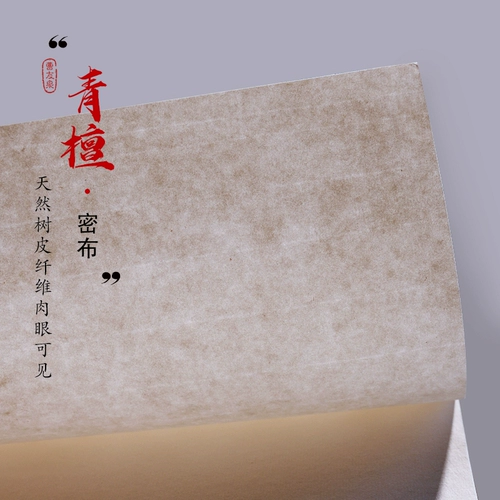 青檀·
密布
天然树皮纤维肉眼可见